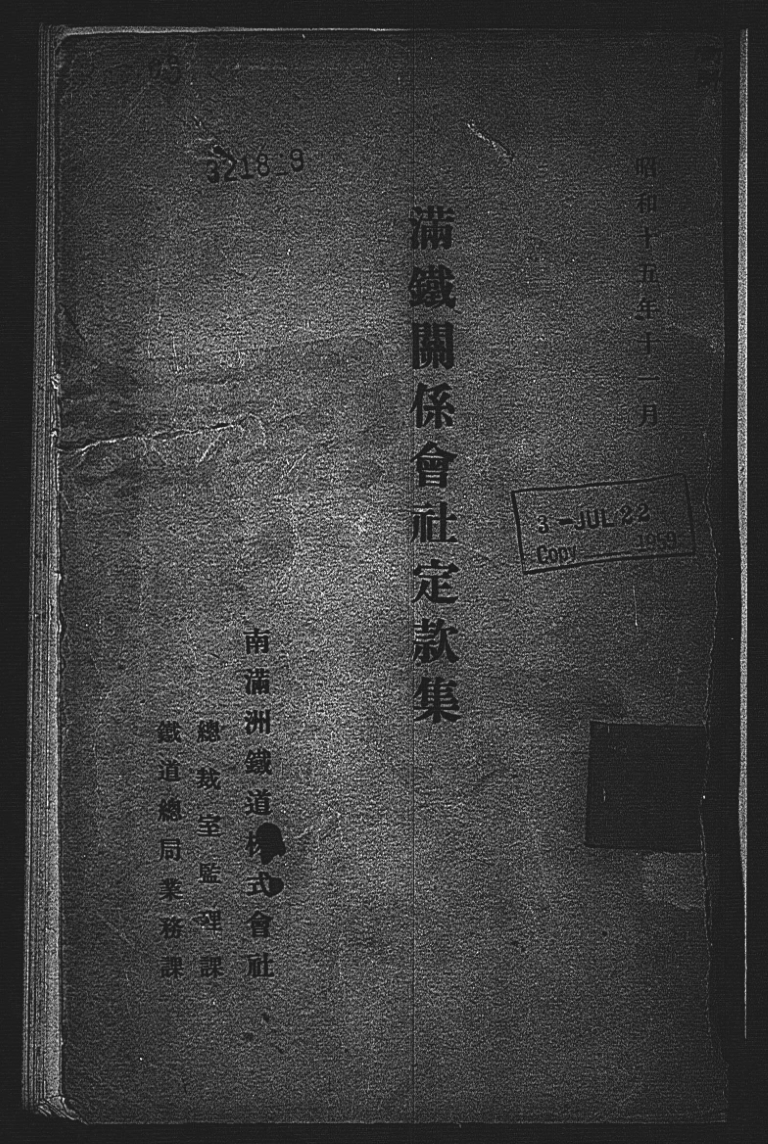 昭和十五年十一月
滿鐵關係會社定款集
南滿洲鐵道株式會社
總裁室監理課
鐵道總局業務課
3218_9
3-JUL 22
Copy 1959